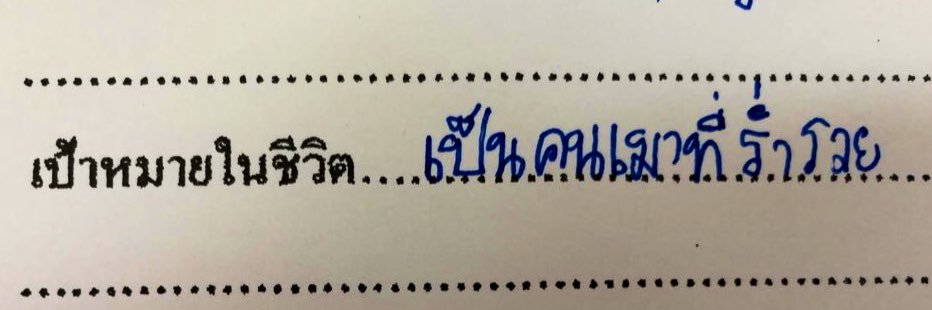 เป้าหมายในชีวิต....เป็นคนเมาที่ร่ำรวย